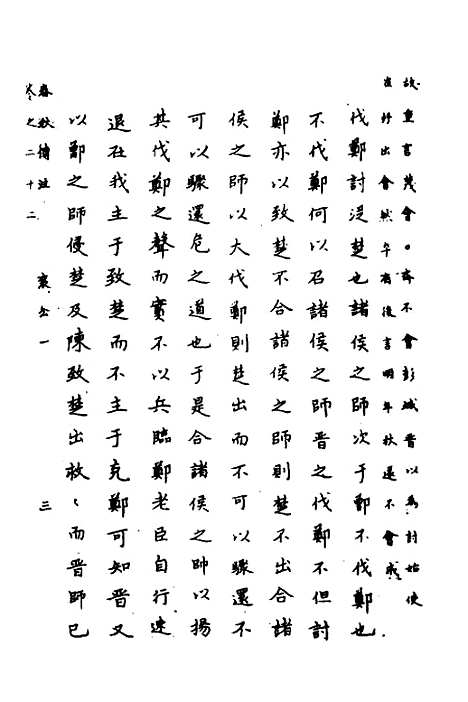 故重言蔑會○齊不會彭城晉以為討始使
崔杼出會然年有後言明年秋還不會戚
伐鄭討從楚也諸侯之師次于鄫不伐鄭也
不伐鄭何以召諸侯之師晉之伐鄭不但討
鄭亦以致楚不合諸侯之師則楚不出合諸
侯之師以大伐鄭則楚出而不可以驟還不
可以驟還危之道也于是合諸侯之帥以揚
其伐鄭之聲而實不以兵臨鄭老臣自行速
退在我主于致楚而不主于克鄭可知晉又
以鄫之師侵楚及陳致楚出救〻而晉師已
春秋傳注
卷之二十二 襄公一 三